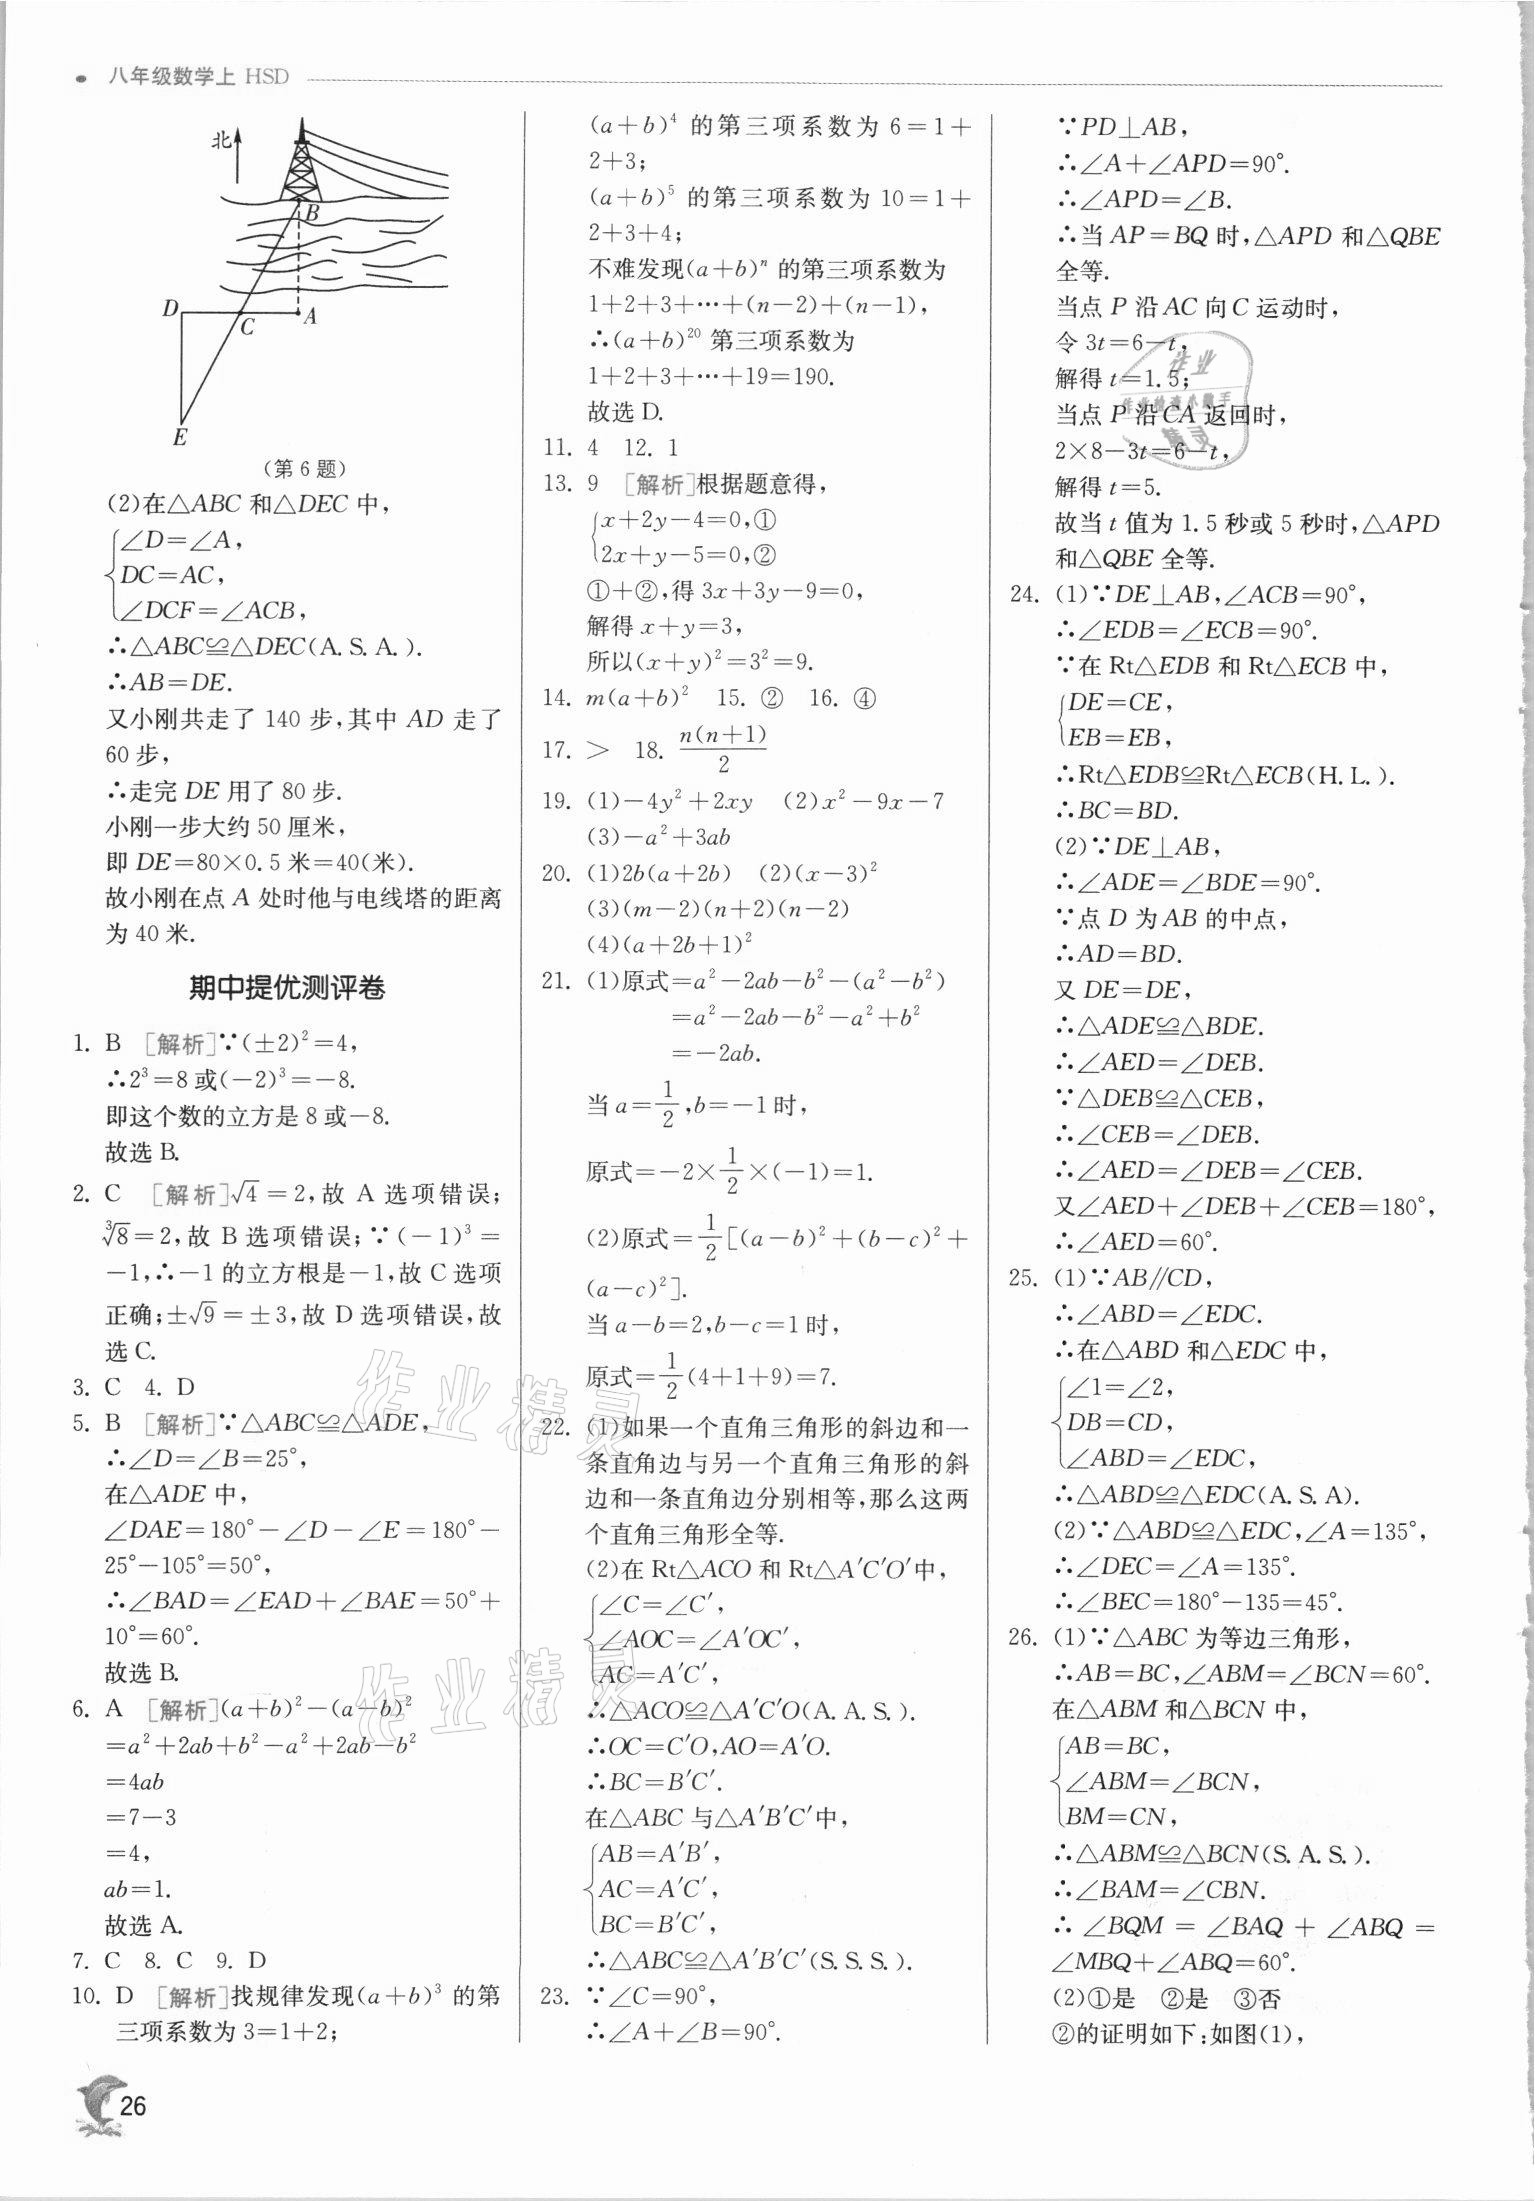 八年级数学上 HSD
北
B
D
C
A
E
(第 6 题)
(2)在△ABC 和△DEC 中,
∠D=∠A,
DC=AC,
∠DCF=∠ACB,
∴△ABC≌△DEC(A. S. A. ).
∴AB=DE.
又小刚共走了 140 步,其中 AD 走了
60 步,
∴走完 DE 用了 80 步.
小刚一步大约 50 厘米,
即 DE=80×0. 5 米=40(米).
故小刚在点 A 处时他与电线塔的距离
为 40 米.
期中提优测评卷
1. B [解析]∵(±2)²=4,
∴2³=8 或(-2)³=-8.
即这个数的立方是 8 或-8.
故选 B.
2. C [解析]√4=2,故 A 选项错误;
∛8=2,故 B 选项错误;∵(-1)³=
-1,∴-1 的立方根是-1,故 C 选项
正确;±√9=±3,故 D 选项错误,故
选 C.
3. C 4. D
5. B [解析]∵△ABC≌△ADE,
∴∠D=∠B=25°,
在△ADE 中,
∠DAE=180°-∠D-∠E=180°-
25°-105°=50°,
∴∠BAD=∠EAD+∠BAE=50°+
10°=60°.
故选 B.
6. A [解析](a+b)²-(a-b)²
=a²+2ab+b²-a²+2ab-b²
=4ab
=7-3
=4,
ab=1.
故选 A.
7. C 8. C 9. D
10. D [解析]找规律发现(a+b)³ 的第
三项系数为 3=1+2;
26
(a+b)⁴ 的第三项系数为 6=1+
2+3;
(a+b)⁵ 的第三项系数为 10=1+
2+3+4;
不难发现(a+b)ⁿ 的第三项系数为
1+2+3+…+(n-2)+(n-1),
∴(a+b)²⁰ 第三项系数为
1+2+3+…+19=190.
故选 D.
11. 4 12. 1
13. 9 [解析]根据题意得,
x+2y-4=0,①
2x+y-5=0,②
①+②,得 3x+3y-9=0,
解得 x+y=3,
所以(x+y)²=3²=9.
14. m(a+b)² 15. ② 16. ④
17. > 18. n(n+1)/2
19. (1)-4y²+2xy (2)x²-9x-7
(3)-a²+3ab
20. (1)2b(a+2b) (2)(x-3)²
(3)(m-2)(n+2)(n-2)
(4)(a+2b+1)²
21. (1)原式=a²-2ab-b²-(a²-b²)
=a²-2ab-b²-a²+b²
=-2ab.
当 a=1/2,b=-1 时,
原式=-2×1/2×(-1)=1.
(2)原式=1/2[(a-b)²+(b-c)²+
(a-c)²].
当 a-b=2,b-c=1 时,
原式=1/2(4+1+9)=7.
22. (1)如果一个直角三角形的斜边和一
条直角边与另一个直角三角形的斜
边和一条直角边分别相等,那么这两
个直角三角形全等.
(2)在 Rt△ACO 和 Rt△A′C′O′中,
∠C=∠C′,
∠AOC=∠A′OC′,
AC=A′C′,
∴△ACO≌△A′C′O(A. A. S. ).
∴OC=C′O,AO=A′O.
∴BC=B′C′.
在△ABC 与△A′B′C′中,
AB=A′B′,
AC=A′C′,
BC=B′C′,
∴△ABC≌△A′B′C′(S. S. S. ).
23. ∵∠C=90°,
∴∠A+∠B=90°.
∵PD⊥AB,
∴∠A+∠APD=90°.
∴∠APD=∠B.
∴当 AP=BQ 时,△APD 和△QBE
全等.
当点 P 沿 AC 向 C 运动时,
令 3t=6-t,
解得 t=1. 5;
当点 P 沿 CA 返回时,
2×8-3t=6-t,
解得 t=5.
故当 t 值为 1. 5 秒或 5 秒时,△APD
和△QBE 全等.
24. (1)∵DE⊥AB,∠ACB=90°,
∴∠EDB=∠ECB=90°.
∵在 Rt△EDB 和 Rt△ECB 中,
DE=CE,
EB=EB,
∴Rt△EDB≌Rt△ECB(H. L. ).
∴BC=BD.
(2)∵DE⊥AB,
∴∠ADE=∠BDE=90°.
∵点 D 为 AB 的中点,
∴AD=BD.
又 DE=DE,
∴△ADE≌△BDE.
∴∠AED=∠DEB.
∵△DEB≌△CEB,
∴∠CEB=∠DEB.
∴∠AED=∠DEB=∠CEB.
又∠AED+∠DEB+∠CEB=180°,
∴∠AED=60°.
25. (1)∵AB∥CD,
∴∠ABD=∠EDC.
∴在△ABD 和△EDC 中,
∠1=∠2,
DB=CD,
∠ABD=∠EDC,
∴△ABD≌△EDC(A. S. A).
(2)∵△ABD≌△EDC,∠A=135°,
∴∠DEC=∠A=135°.
∴∠BEC=180°-135=45°.
26. (1)∵△ABC 为等边三角形,
∴AB=BC,∠ABM=∠BCN=60°.
在△ABM 和△BCN 中,
AB=BC,
∠ABM=∠BCN,
BM=CN,
∴△ABM≌△BCN(S. A. S. ).
∴∠BAM=∠CBN.
∴∠BQM=∠BAQ+∠ABQ=
∠MBQ+∠ABQ=60°.
(2)①是 ②是 ③否
②的证明如下:如图(1),
作业
作业检查小助手
精灵
作业精灵
作业精灵